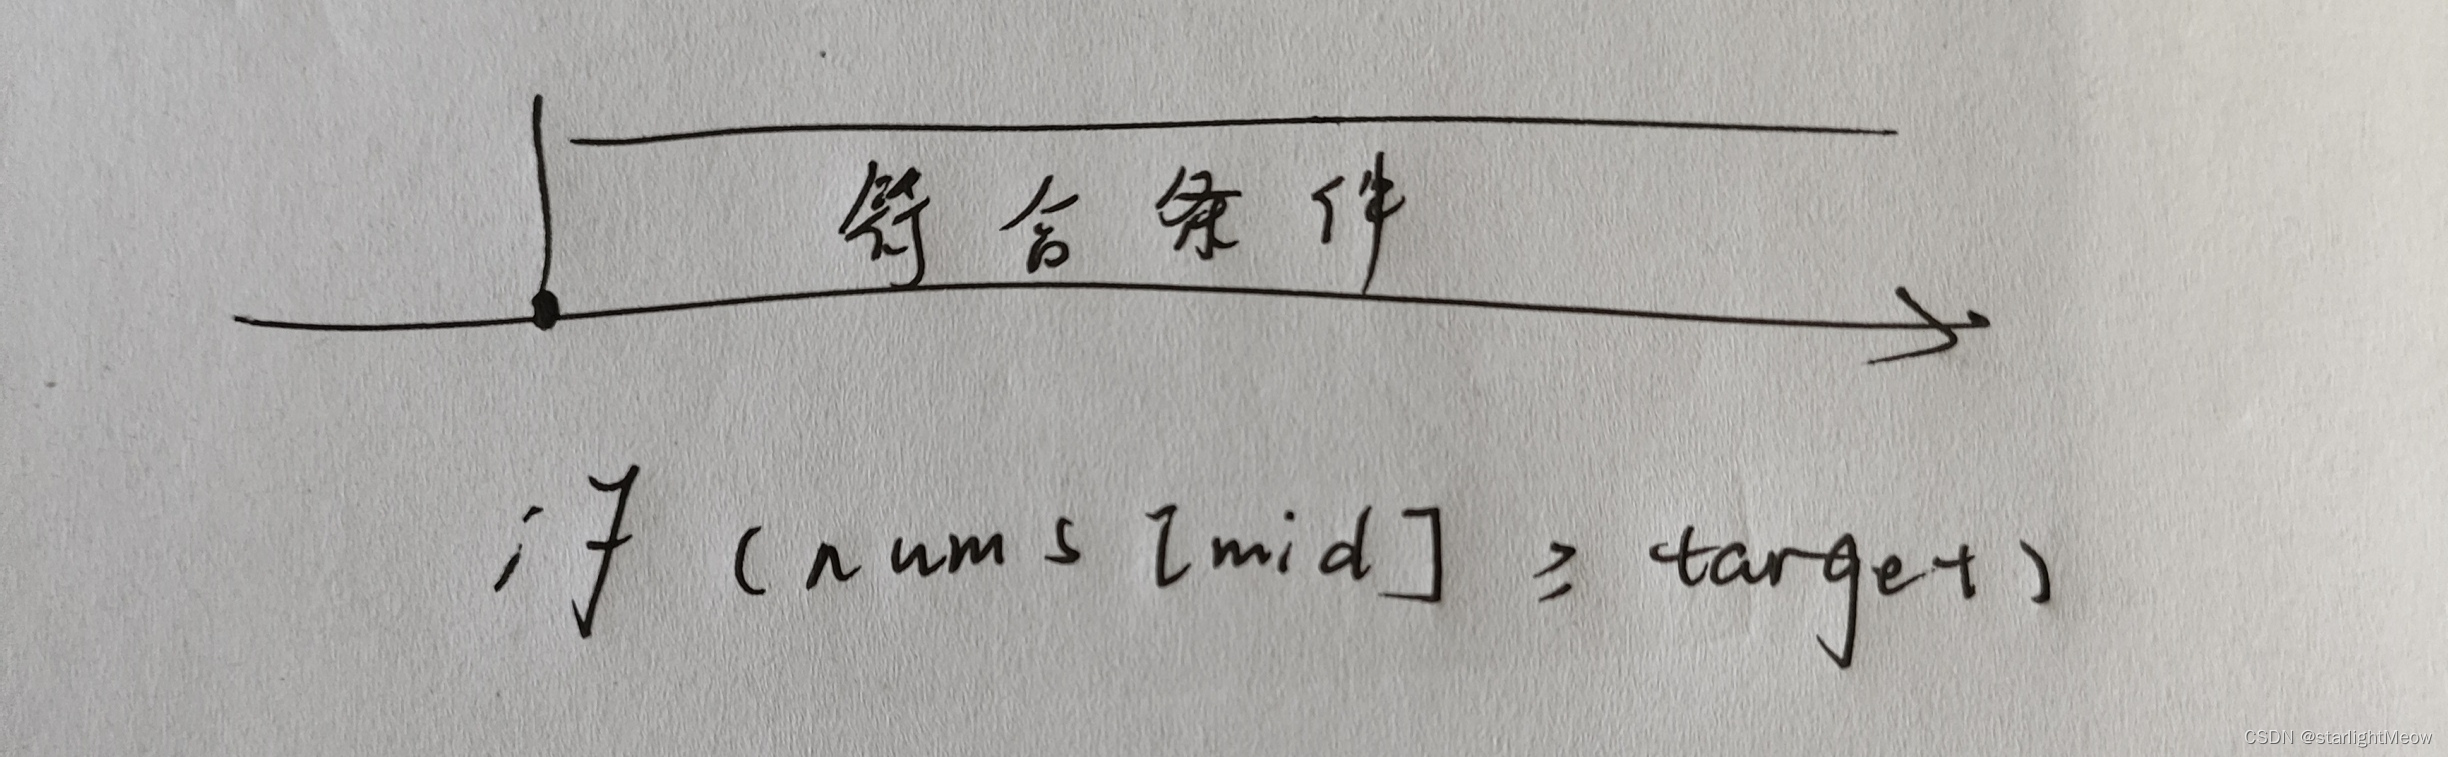 符合条件
if (nums [mid] ≥ target)
CSDN @starlightMeow